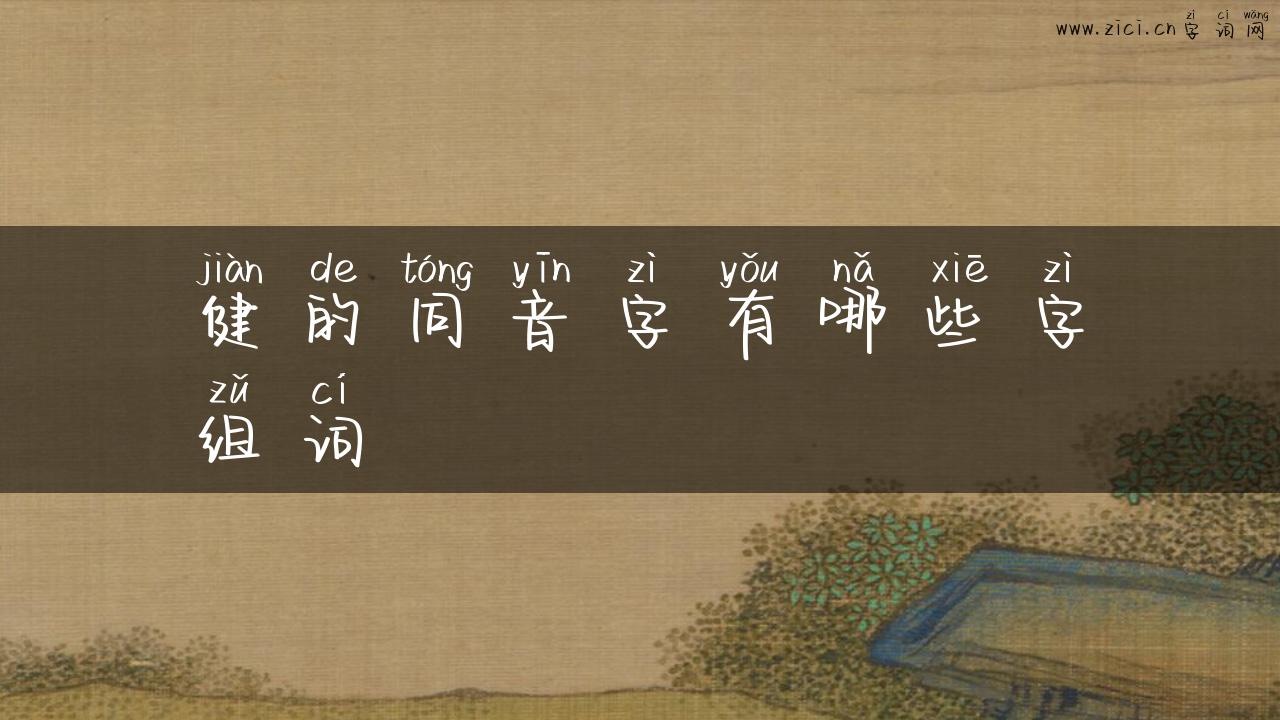 zì cí wǎng
www.zici.cn 字词网
jiàn de tóng yīn zì yǒu nǎ xiē zì
健的同音字有哪些字
zǔ cí
组词